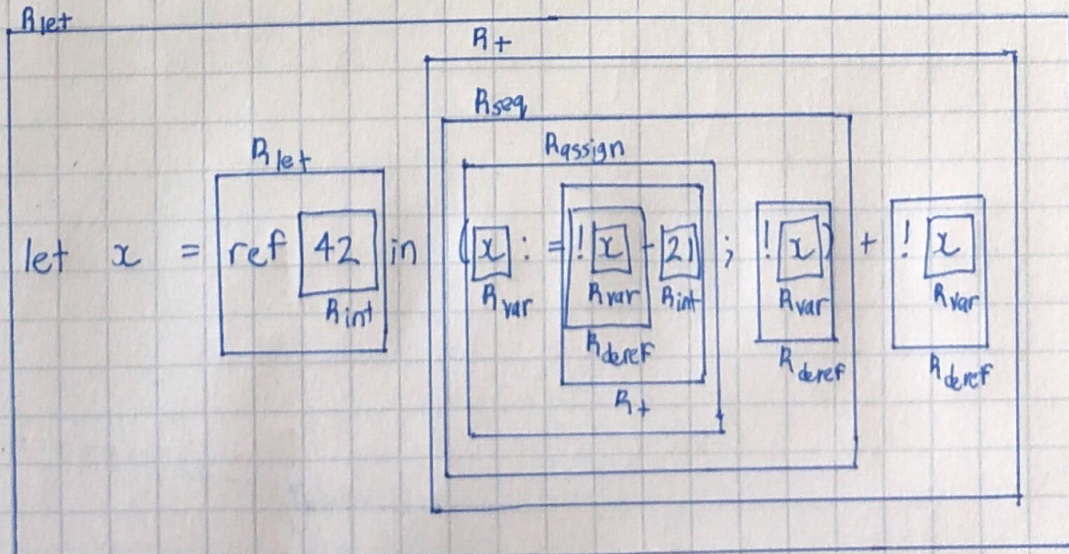 Rlet
R+
Rseq
Rassign
Rlet
let x = ref 42 in (x := !x - 21 ; !x) + !x
Rint Rvar Rvar Rint Rvar Rvar
Rderef Rderef Rderef
R+